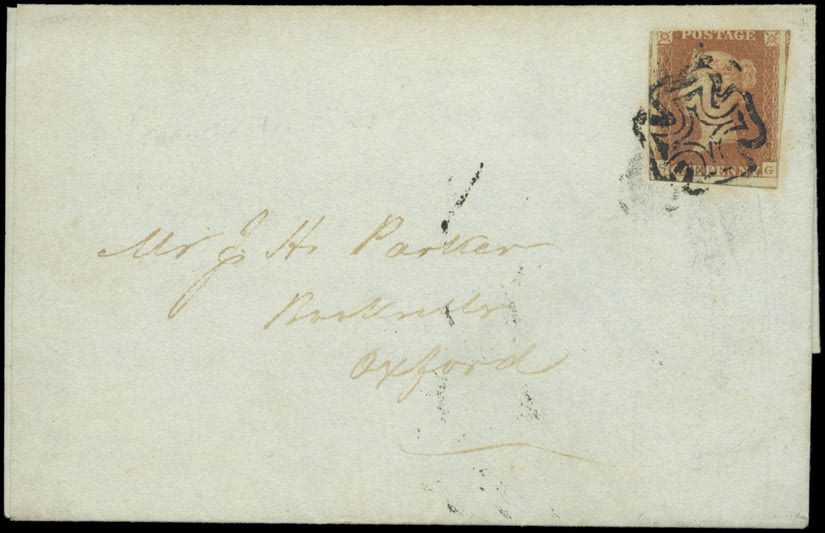 POSTAGE
NE PENN
G
Mr J. H. Parker
Bookseller
Oxford